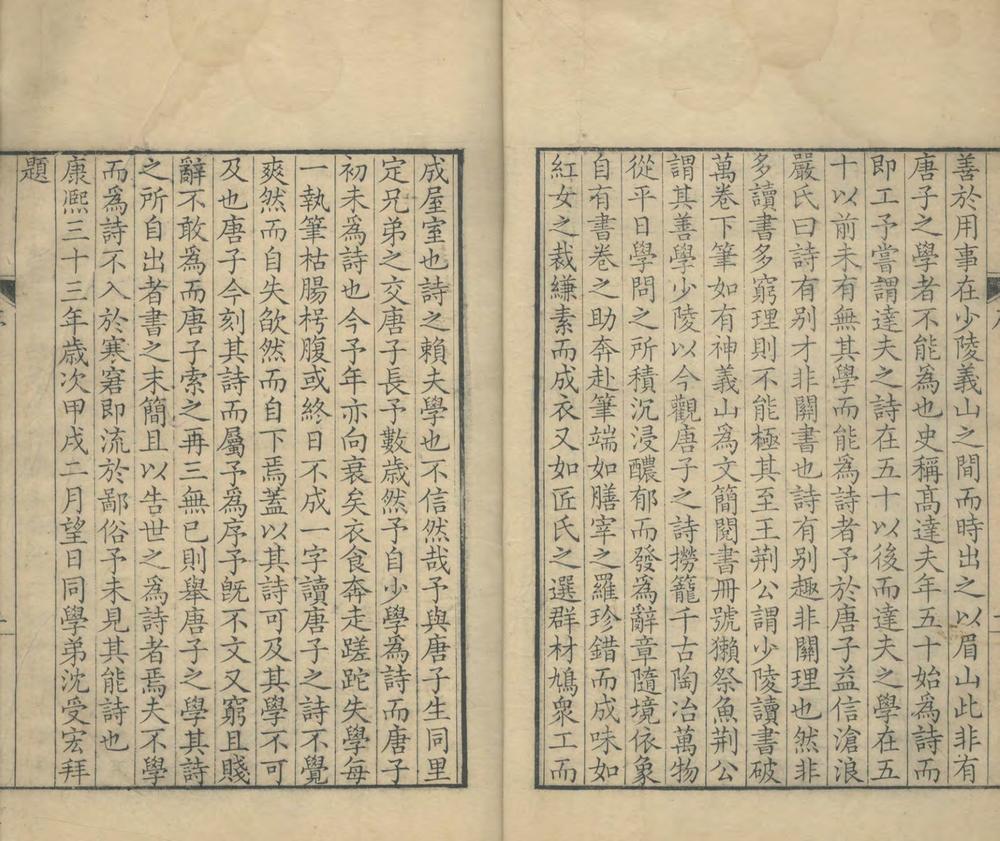 善於用事在少陵義山之間而時出之以眉山此非有
唐子之學者不能為也史稱髙達夫年五十始為詩而
即工予嘗謂達夫之詩在五十以後而達夫之學在五
十以前未有無其學而能為詩者予於唐子益信滄浪
嚴氏曰詩有别才非關書也詩有别趣非關理也然非
多讀書多窮理則不能極其至王荆公謂少陵讀書破
萬卷下筆如有神義山為文簡閱書冊號獺祭魚荆公
謂其善學少陵以今觀唐子之詩撈籠千古陶冶萬物
從平日學問之所積沉浸醲郁而發為辭章隨境依象
自有書卷之助奔赴筆端如膳宰之羅珍錯而成味如
紅女之裁縑素而成衣又如匠氏之選群材鳩衆工而
成屋室也詩之賴夫學也不信然哉予與唐子生同里
定兄弟之交唐子長予數歲然予自少學為詩而唐子
初未為詩也今予年亦向衰矣衣食奔走蹉跎失學每
一執筆枯腸枵腹或終日不成一字讀唐子之詩不覺
爽然而自失欿然而自下焉蓋以其詩可及其學不可
及也唐子今刻其詩而屬予為序予旣不文又窮且賤
辭不敢為而唐子索之再三無已則舉唐子之學其詩
之所自出者書之末簡且以告世之為詩者焉夫不學
而為詩不入於寒窘即流於鄙俗予未見其能詩也
康熙三十三年歳次甲戌二月望日同學弟沈受宏拜
題